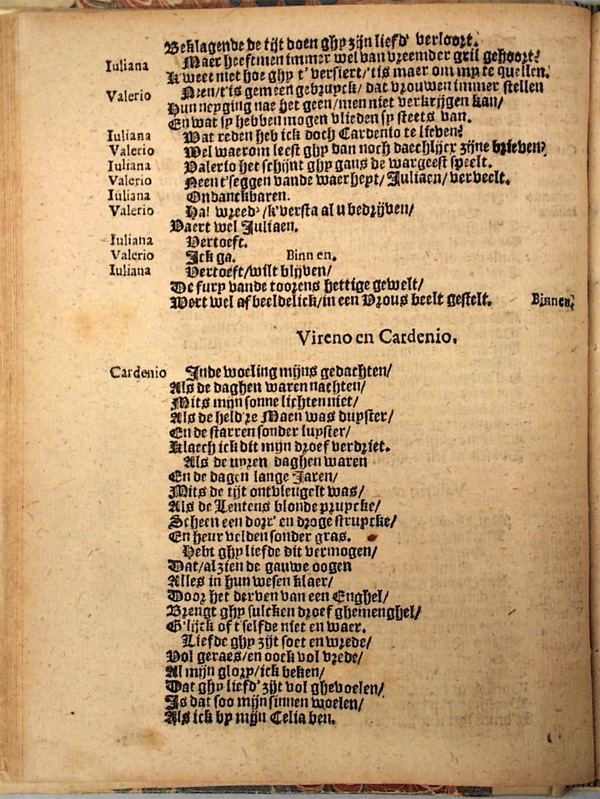 Beklagende de tijt doen ghy zijn liefd' verloort.
Iuliana Maer heeftmen immer wel van vreemder gril gehoort?
K'weet niet hoe ghy t' versiert/ 'tis maer om my te quellen.
Valerio Neen/ t'is gemeen gebruyck/ dat vrouwen immer stellen
Hun neyging nae het geen/ men niet verkrijgen kan/
En wat sy hebben mogen vlieden sy steets van.
Iuliana Wat reden heb ick doch Cardenio te lieben?
Valerio Wel waerom leest ghy dan noch daechlijcx zijne brieven?
Iuliana Valerio het schijnt ghy gans de wargeest speelt.
Valerio Neen t'seggen vande waerheyt/ Juliaen/ verveelt.
Iuliana Ondanckbaren.
Valerio Ha! wreed' /k'versta al u bedrijven/
Vaert wel Juliaen.
Iuliana Vertoeft.
Valerio Ick ga. Binnen.
Iuliana Vertoeft/ wilt blijven/
De fury vande toorens hettige gewelt/
Wort wel afbeeldelick/ in een Vrous beelt gestelt. Binnen.
Vireno en Cardenio.
Cardenio Inde woeling mijns gedachten/
Als de daghen waren nachten/
Mits mijn sonne lichten niet/
Als de held're Maen was duyster/
En de starren sonder luyster/
Klaech ick dit mijn droef verdriet.
Als de uyren daghen waren
En de dagen lange Jaren/
Mits de tijt ontvleugelt was/
Als de Lentens blonde pruycke/
Scheen een dorr' en droge struycke/
En heur velden sonder gras.
Hebt ghy liefde dit vermogen/
Dat/ al zien de gauwe oogen
Alles in hun wesen klaer/
Door het derven van een Enghel/
Brengt ghy sulcken droef ghemenghel/
G'lijck of t'selfde niet en waer.
Liefde ghy zijt soet en wrede/
Vol geraes/ en oock vol vrede/
Al mijn glory/ ick beken/
Dat ghy liefd' zijt vol ghevoelen/
Is dat soo mijn sinnen woelen/
Als ick by mijn Celia ben.